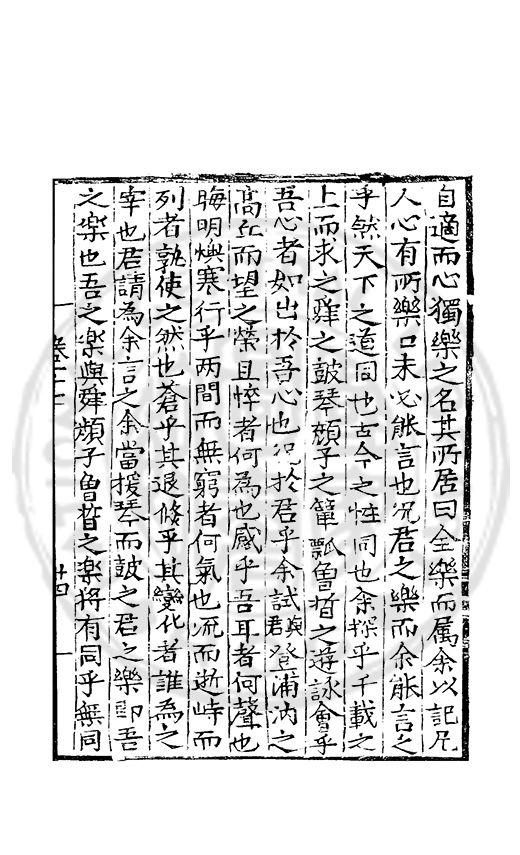 自適而心獨樂之名其所居曰全樂而属余以記凡
人心有所樂口未必能言也况君之樂而余能言之
乎然天下之道同也古今之性同也余探乎千載之
上而求之舜之鼓琴顔子之簞瓢魯晳之遊詠會乎
吾心者如出於吾心也况於君乎余試與君登浦汭之
高丘而望之榮且悴者何為也感乎吾耳者何聲也
晦明燠寒行乎两間而無窮者何氣也流而逝峙而
列者孰使之然也蒼乎其退倏乎其變化者誰為之
宰也君請為余言之余當援琴而鼓之君之樂即吾
之樂也吾之樂與舜顔子魯晳之樂将有同乎無同
卷二十七
廿四